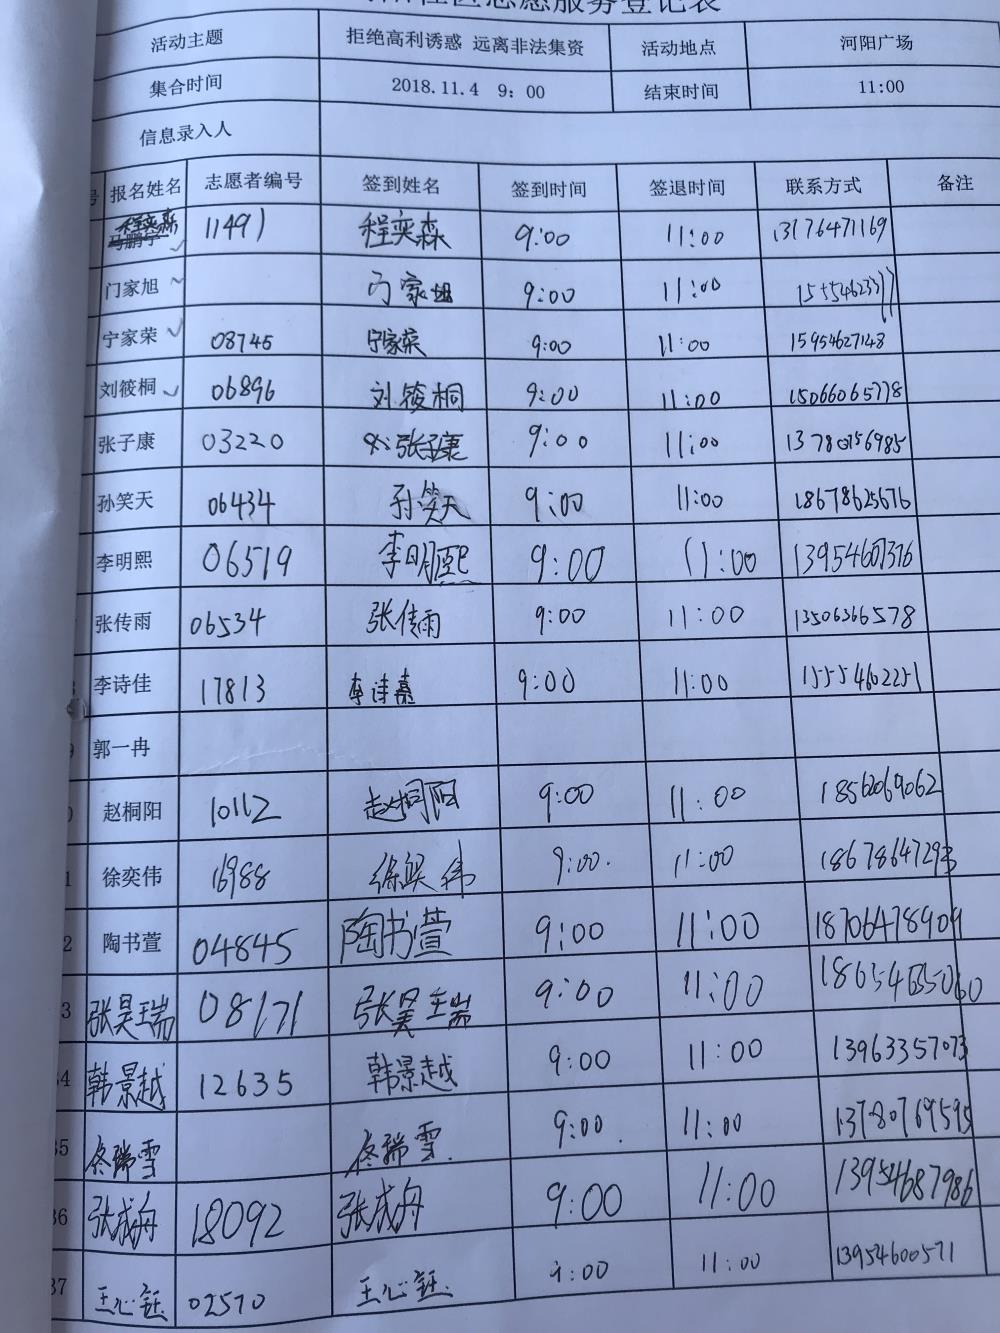 社区志愿服务登记表
活动主题 拒绝高利诱惑 远离非法集资 活动地点 河阳广场
集合时间 2018.11.4 9：00 结束时间 11:00
信息录入人
号 报名姓名 志愿者编号 签到姓名 签到时间 签退时间 联系方式 备注
程奕森 11491 程奕森 9:00 11:00 13176471169
马鹏宇
门家旭 门家旭 9:00 11:00
宁家荣 08745 宁家荣 9:00 11:00 15954627148
刘筱桐 06896 刘筱桐 9:00 11:00 15066065778
张子康 03220 张子康 9:00 11:00 13780756985
孙笑天 06434 孙笑天 9:00 11:00 18678625676
李明熙 06519 李明熙 9:00 11:00 13954607376
张传雨 06534 张传雨 9:00 11:00 13506366578
李诗佳 17813 李诗嘉 9:00 11:00 15554602251
9 郭一冉
0 赵桐阳 10112 赵桐阳 9:00 11:00 18562069062
1 徐奕伟 16988 徐奕伟 9:00. 11:00
2 陶书萱 04845 陶书萱 9:00 11:00 18706478909
3 张昊瑞 08171 张昊瑞 9:00 11:00
34 韩景越 12635 韩景越 9:00 11:00 13963357073
35 佟瑞雪 佟瑞雪. 9:00. 11:00 13780769595
36 张成舟 18092 张成舟 9:00 11:00 13954687986
37 王心钰 02570 王心钰. 9:00 11:00 13954600571